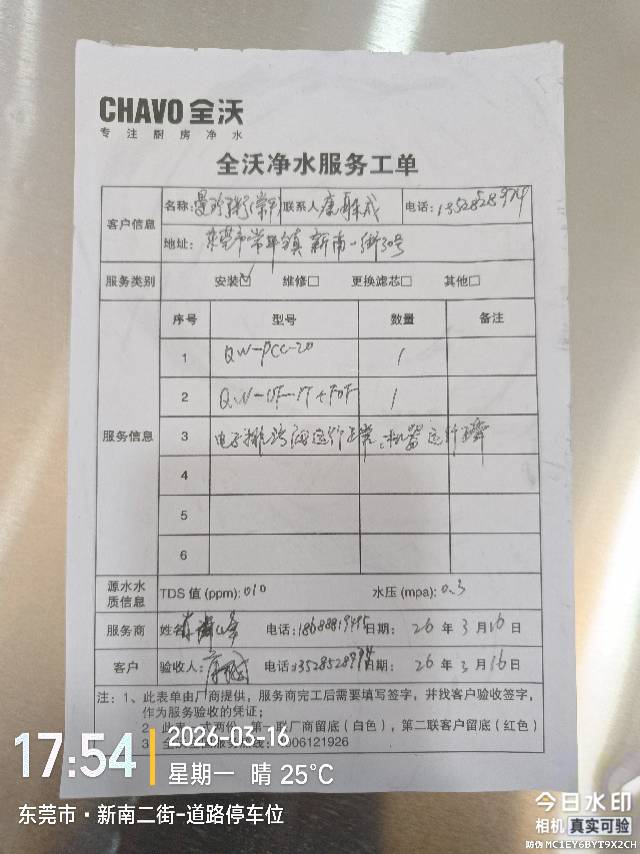 CHAVO 全沃
专注厨房净水
全沃净水服务工单
客户信息 名称: 曼玲粥(常平) 联系人 康 成 电话: 13528528974
地址: 东莞市常平镇新南一街30号
服务类别 安装☑ 维修□ 更换滤芯□ 其他□
服务信息 序号 型号 数量 备注
1 QW-PCC-20 1
2 QW-UF-1T+FOF 1
3 电子排污阀运行正常,机器运行正常
4
5
6
源水水质信息 TDS 值 (ppm): 010 水压 (mpa): 0.3
服务商 姓名: 电话: 日期: 26 年 3 月 16 日
客户 验收人: 电话: 13528528974 日期: 26 年 3 月 16 日
注: 1、此表单由厂商提供,服务商完工后需要填写签字,并找客户验收签字,
作为服务验收的凭证;
2 此表一式两份,第一联厂商留底(白色),第二联客户留底(红色)
3 006121926
17:54
2026-03-16
星期一 晴 25℃
东莞市·新南二街-道路停车位
今日水印
相机 真实可验
防伪 MC1EY6BYT9X2CH